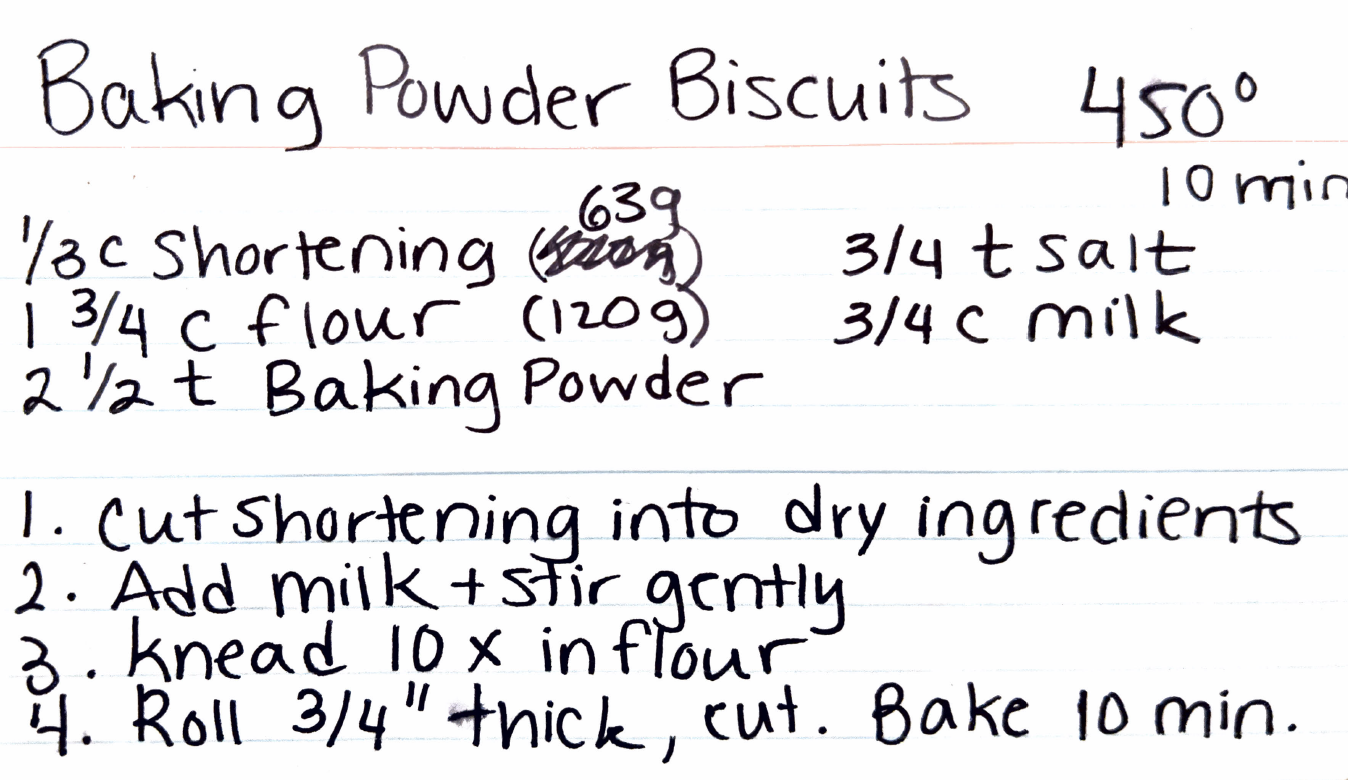 Baking Powder Biscuits 450°
10 min
63g
1/3 c Shortening ( ) 3/4 t salt
1 3/4 c flour (120g) 3/4 c milk
2 1/2 t Baking Powder
1. Cut shortening into dry ingredients
2. Add milk + stir gently
3. Knead 10 x in flour
4. Roll 3/4" thick, cut. Bake 10 min.